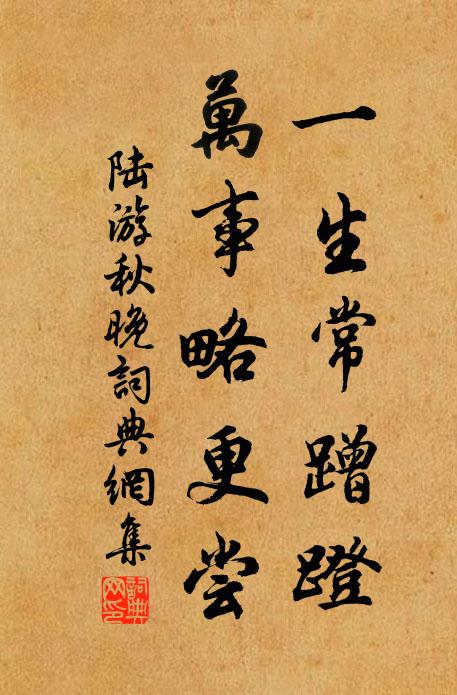 一生常蹭蹬
萬事略更尝
陆游秋晚詞典網集
詞典
网印